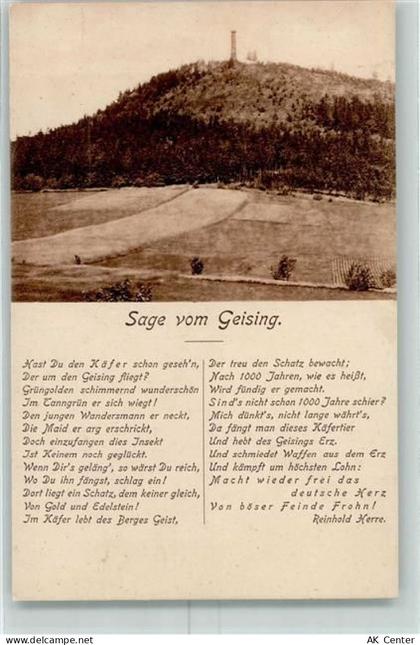 Sage vom Geising.
Hast Du den Käfer schon geseh'n,
Der um den Geising fliegt?
Grüngolden schimmernd wunderschön
Im Tanngrün er sich wiegt!
Den jungen Wandersmann er neckt,
Die Maid er arg erschrickt,
Doch einzufangen dies Insekt
Ist Keinem noch geglückt.
Wenn Dir's geläng', so wärst Du reich,
Wo Du ihn fängst, schlag ein!
Dort liegt ein Schatz, dem keiner gleich,
Von Gold und Edelstein!
Im Käfer lebt des Berges Geist,
Der treu den Schatz bewacht;
Nach 1000 Jahren, wie es heißt,
Wird fündig er gemacht.
Sind's nicht schon 1000 Jahre schier?
Mich dünkt's, nicht lange währt's,
Da fängt man dieses Käfertier
Und hebt des Geisings Erz.
Und schmiedet Waffen aus dem Erz
Und kämpft um höchsten Lohn:
Macht wieder frei das
deutsche Herz
Von böser Feinde Frohn!
Reinhold Herre.
AK Center